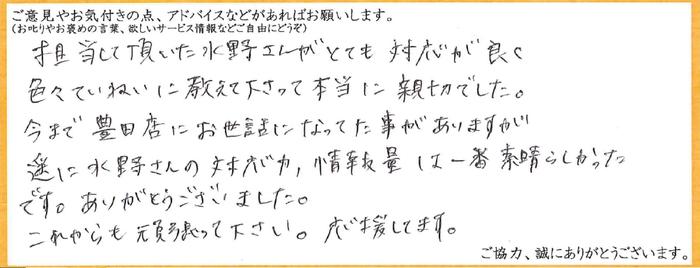 ご意見やお気付きの点、アドバイスなどがあればお願いします。
(お叱りやお褒めの言葉、欲しいサービス情報などご自由にどうぞ)
担当して頂いた水野さんがとても対応が良く
色々ていねいに教えて下さって本当に親切でした。
今まで豊田店にお世話になってた事がありますが
遙に水野さんの対応力,情報量は一番素晴らしかった
です。ありがとうございました。
これからも頑張って下さい。応援してます。
ご協力、誠にありがとうございます。